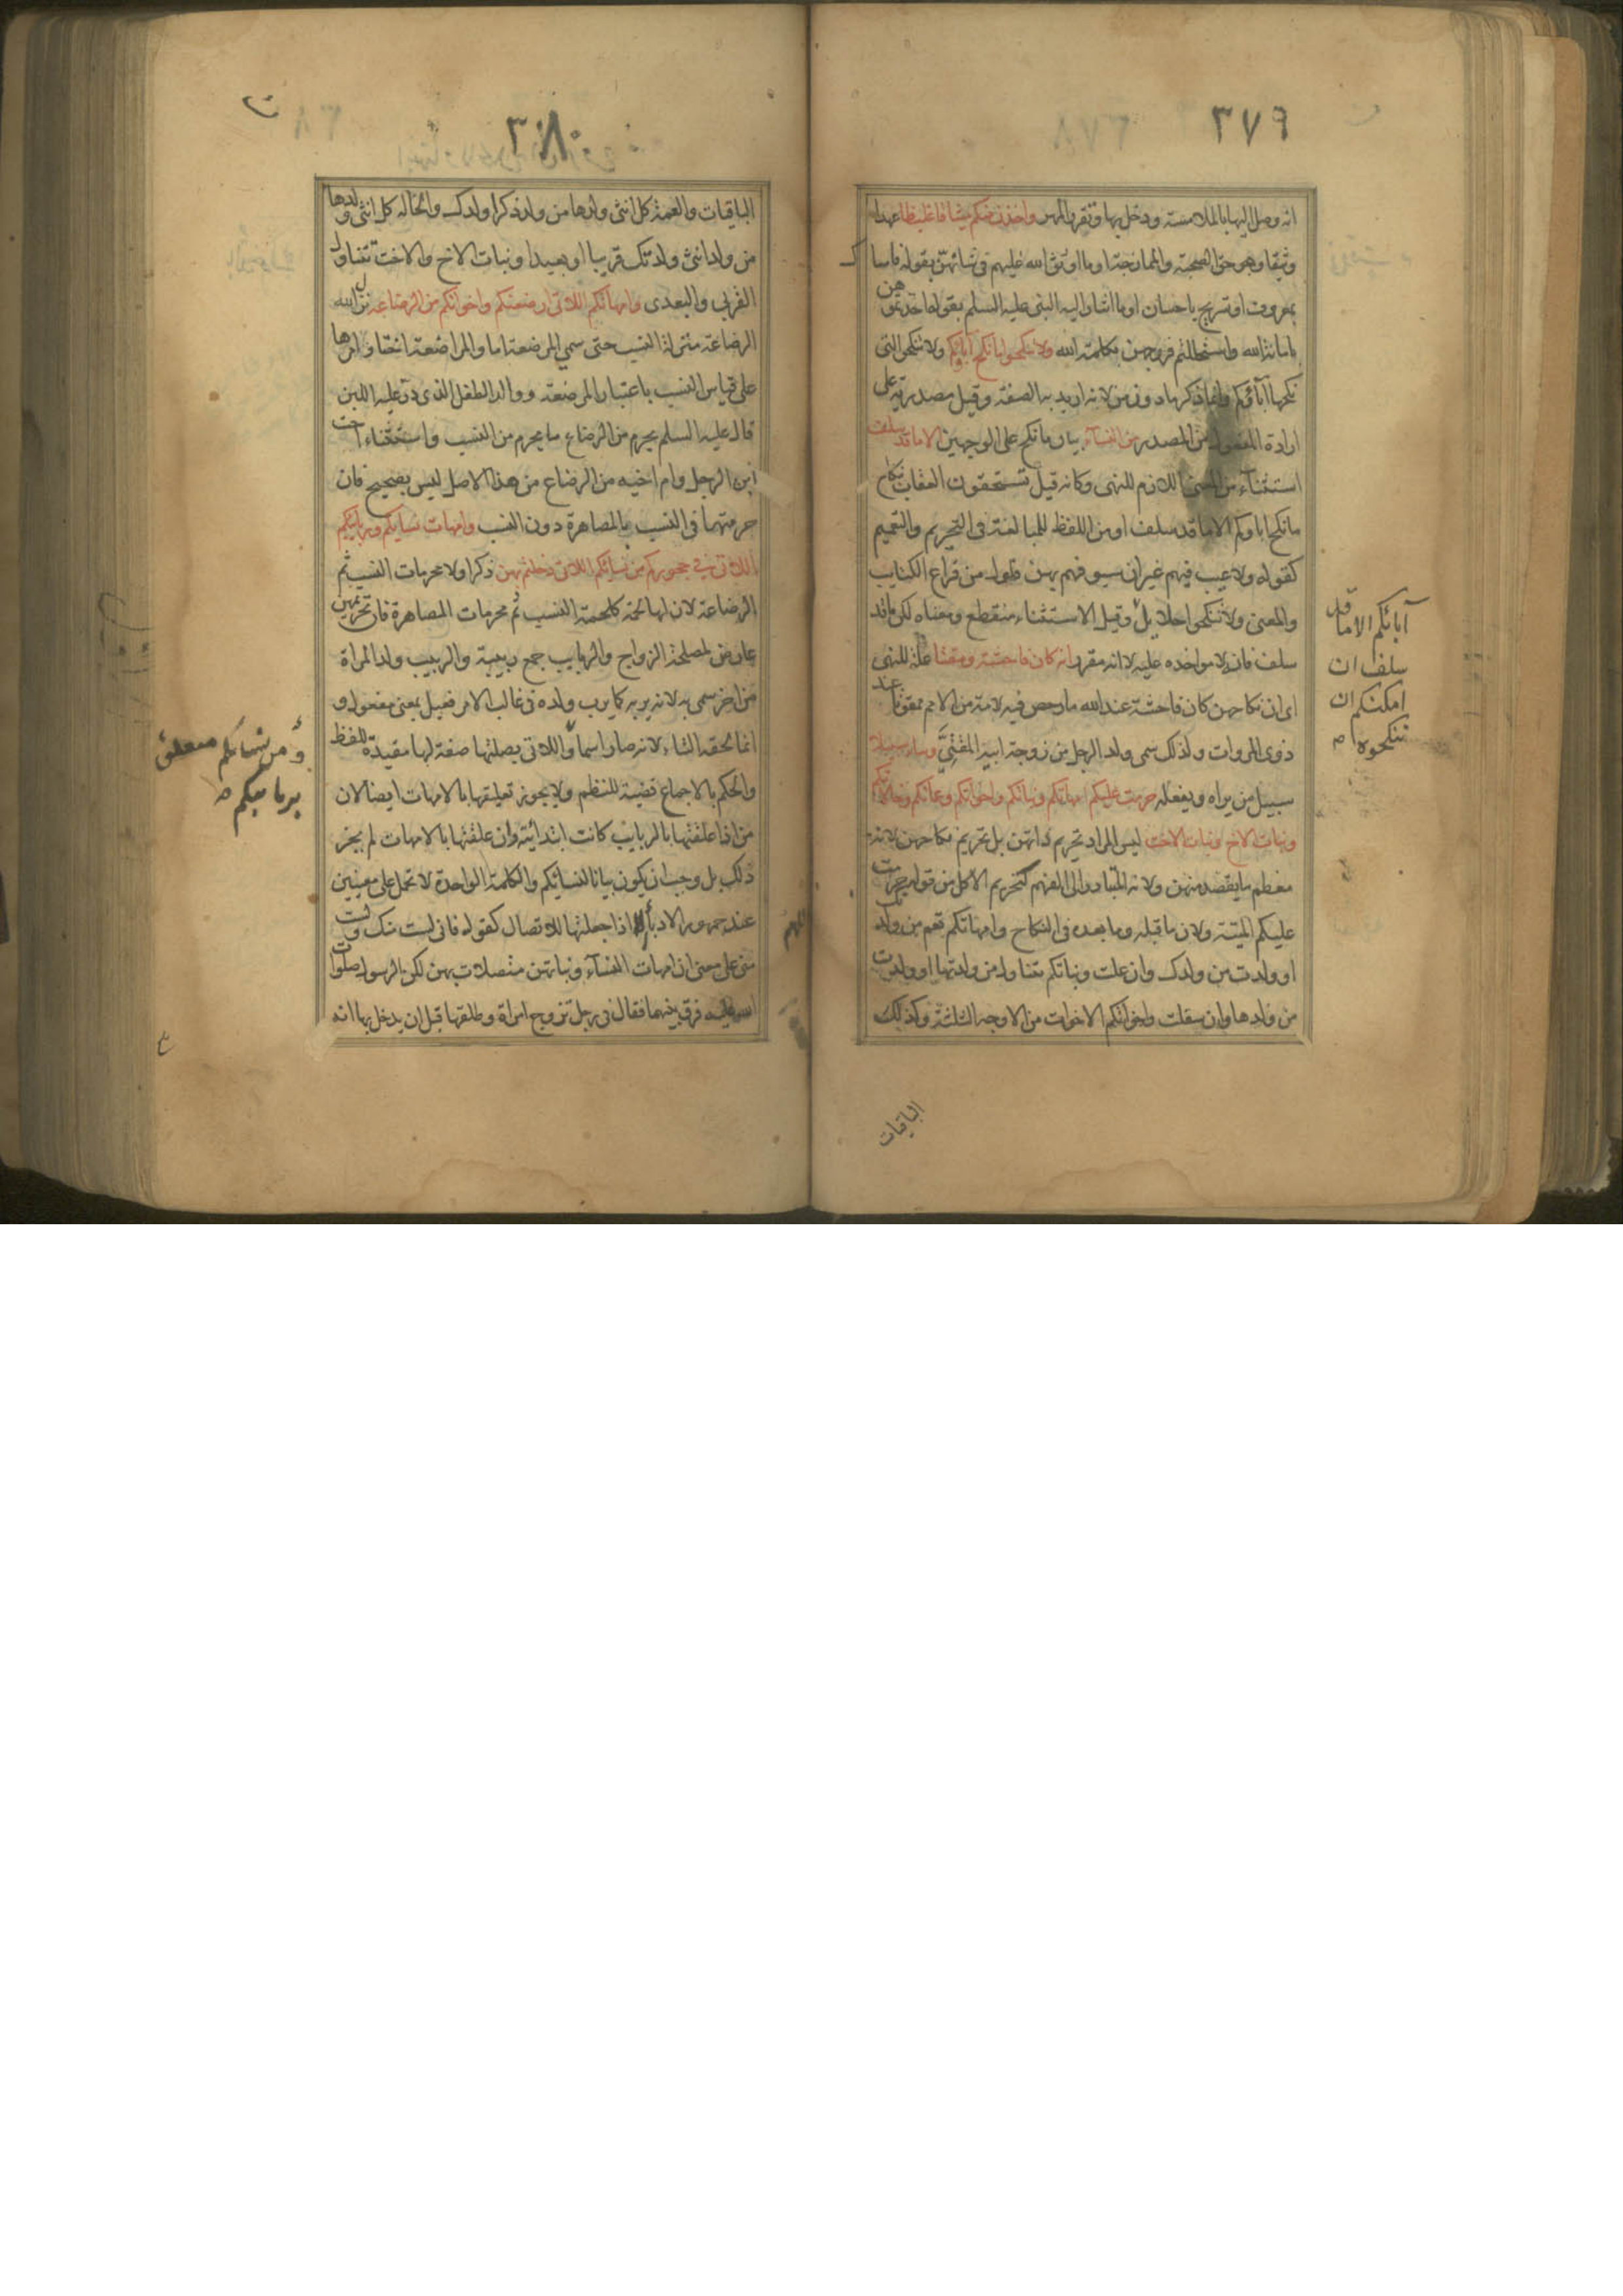 ٣٧٩
انه وصل اليها بالملامسة ودخل بها وتقرر المهر واخذن منكم ميثاقا غليظا عهدا
وثيقا وهو حق الصحبة والممازجة او ما اوثق الله عليهم فى شانهن بقوله فامساك
بمعروف او تسريح باحسان او ما اشار اليه النبى عليه السلم بقوله اخذتموهن
بامانة الله واستحللتم فروجهن بكلمة الله ولا تنكحوا ما نكح اباؤكم ولا تنكحوا التى
نكحها آباؤكم وانما ذكر ما دون من لانه اريد به الصفة وقيل ما مصدرية على
ارادة المفعول من المصدر من النسآء بيان ما نكح على الوجهين الا ما قد سلف
استثنآء من المعنى اللازم للنهى وكانه قيل تستحقون العقاب بنكاح
ما نكح اباوكم الا ما قد سلف او من اللفظ للمبالغة فى التحريم والتعميم
كقوله ولا عيب فيهم غير ان سيوفهم بهن فلول من قراع الكتايب
والمعنى ولا تنكحوا حلايل وقيل الاستثناء منقطع ومعناه لكن ما قد
سلف فانه لا مواخذه عليه لا انه مقرر انه كان فاحشة ومقتا علة للنهى
اى ان نكاحهن كان فاحشة عند الله ما رخص فيه لامة من الامم ممقوتا عند
ذوى المروات ولذلك سمى ولد الرجل من زوجة ابيه المقتى وسآء سبيلا
سبيل من يراه ويفعله حرمت عليكم امهاتكم وبناتكم واخواتكم وعماتكم وخالاتكم
وبنات الاخ وبنات الاخت ليس المراد تحريم ذاتهن بل تحريم نكاحهن لانه
معظم ما يقصد منهن ولانه المتبادر الى الفهم كتحريم الاكل من قوله حرمت
عليكم الميتة ولان ما قبله وما بعده فى النكاح وامهاتكم تعم من ولدتك
او ولدت من ولدك وان علت وبناتكم تتناول من ولدتها او ولدت
من ولدها وان سفلت واخواتكم الاخوات من الاوجه الثلثة وكذلك
آبائكم الا ما قد
سلف ان
امكنكم ان
تنكحوه
الباقيات
٣٨٠
الباقيات والعمة كل انثى ولدها من ولد ذكرا ولدك والخاله كل انثى ولدها
من ولد انثى ولدتك قريبا او بعيدا وبنات الاخ والاخت تتناول
القربى والبعدى وامهاتكم اللاتى ارضعنكم واخواتكم من الرضاعة نزل الله
الرضاعة منزلة النسب حتى سمى المرضعة اما والمراضعة اختا وامرها
على قياس النسب باعتبار المرضعة ووالد الطفل الذى در عليه اللبن
قال عليه السلم يحرم من الرضاع ما يحرم من النسب واستثناء اخت
ابن الرجل وام اخيه من الرضاع من هذا الاصل ليس بصحيح فان
حرمتهما فى النسب بالمصاهرة دون النسب وامهات نسايكم وربايبكم
اللاتى فى حجوركم من نسائكم اللاتى دخلتم بهن ذكر اولا محرمات النسب ثم
الرضاعة لان لها لحمة كلحمة النسب ثم محرمات المصاهرة فان تحريمهن
عارض لمصلحة الزواج والربايب جمع ربيبة والربيب ولد المراة
من اخر سمى به لانه يربه كما يرب ولده فى غالب الامر فعيل بمعنى مفعول و
انما لحقه التاء لانه صار اسما واللاتى بصلتها صفة لها مقيدة للفظ
والحكم بالاجماع قضية للنظم ولا يجوز تعليقها بالامهات ايضا لان
من اذا علقتها بالربايب كانت ابتدائية وان علقتها بالامهات لم يجز
ذلك بل وجب ان يكون بيانا لنسائكم والكلمة الواحدة لا تحمل على معنيين
عند جمهور الادبآء اذا جعلتها للاتصال كقوله فانى لست منك ولست
منى على معنى ان امهات النسآء وبناتهن متصلات بهن لكن الرسول صلوات
الله عليه فرق بينهما فقال فى رجل تزوج امراة وطلقها قبل ان يدخل بها انه
ومن نسائكم متعلق
بربايبكم